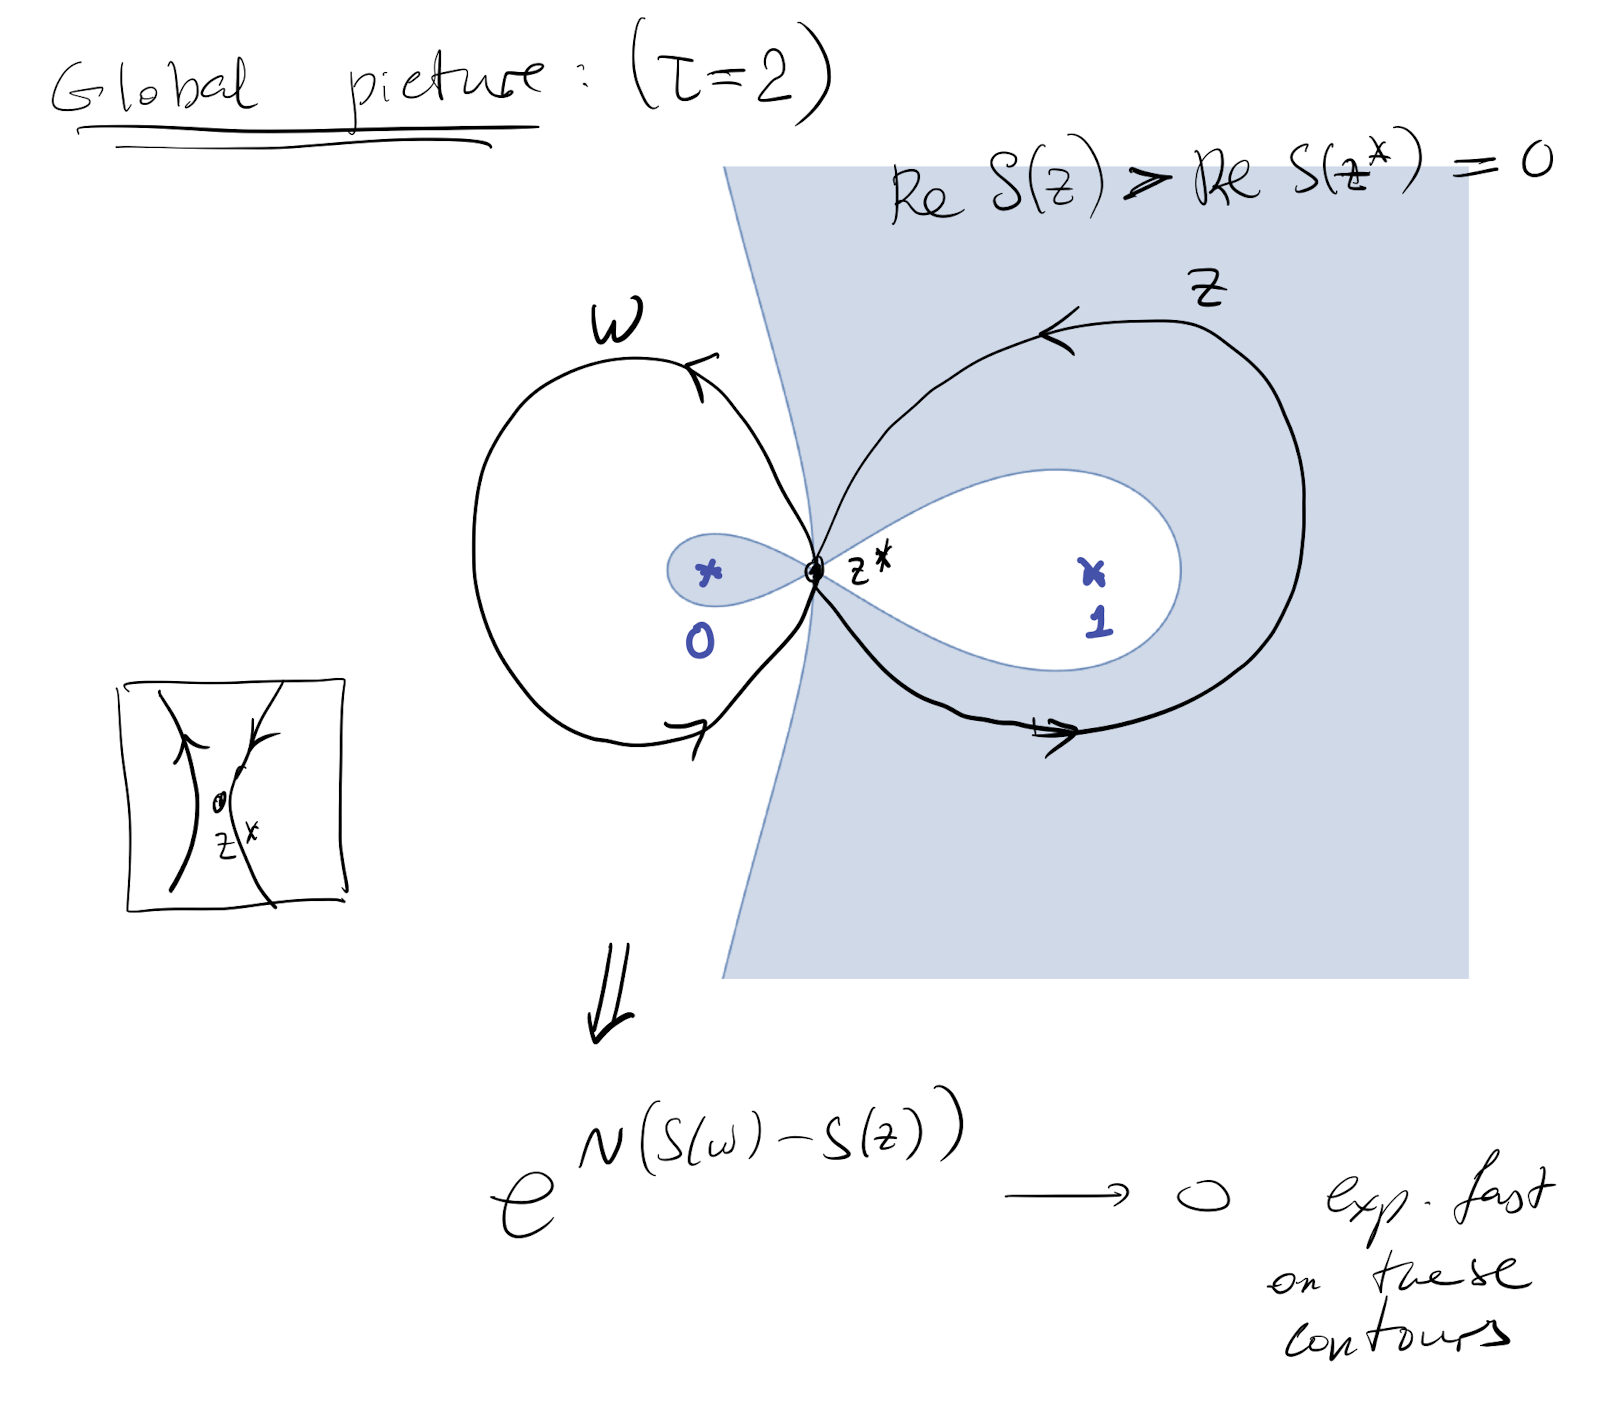 Global picture: (τ=2)
Re S(z) > Re S(z*) = 0
z
w
z*
0
1
z*
⇓
e^{N(S(w)-S(z))} → 0 exp. fast
on these
contours